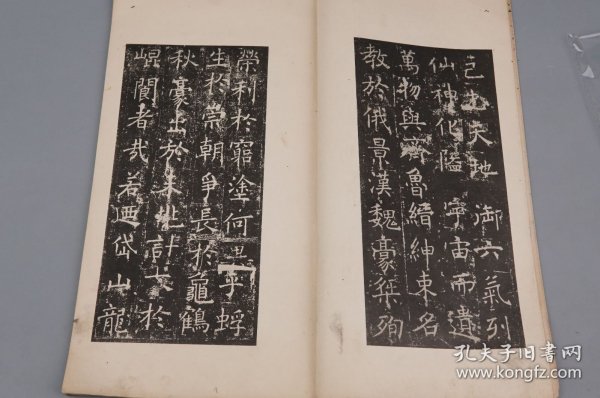 己天地御六氣列
仙神化隘宇宙而遺
萬物與齊魯縉紳束名
教於俄景漢魏豪桀殉
榮利於窮塗何乎蜉
生於崇朝爭長於龜鶴
秋豪出於未兆計大於
崐閬者哉若迺岱山龍
孔夫子旧书网
www.kongfz.com